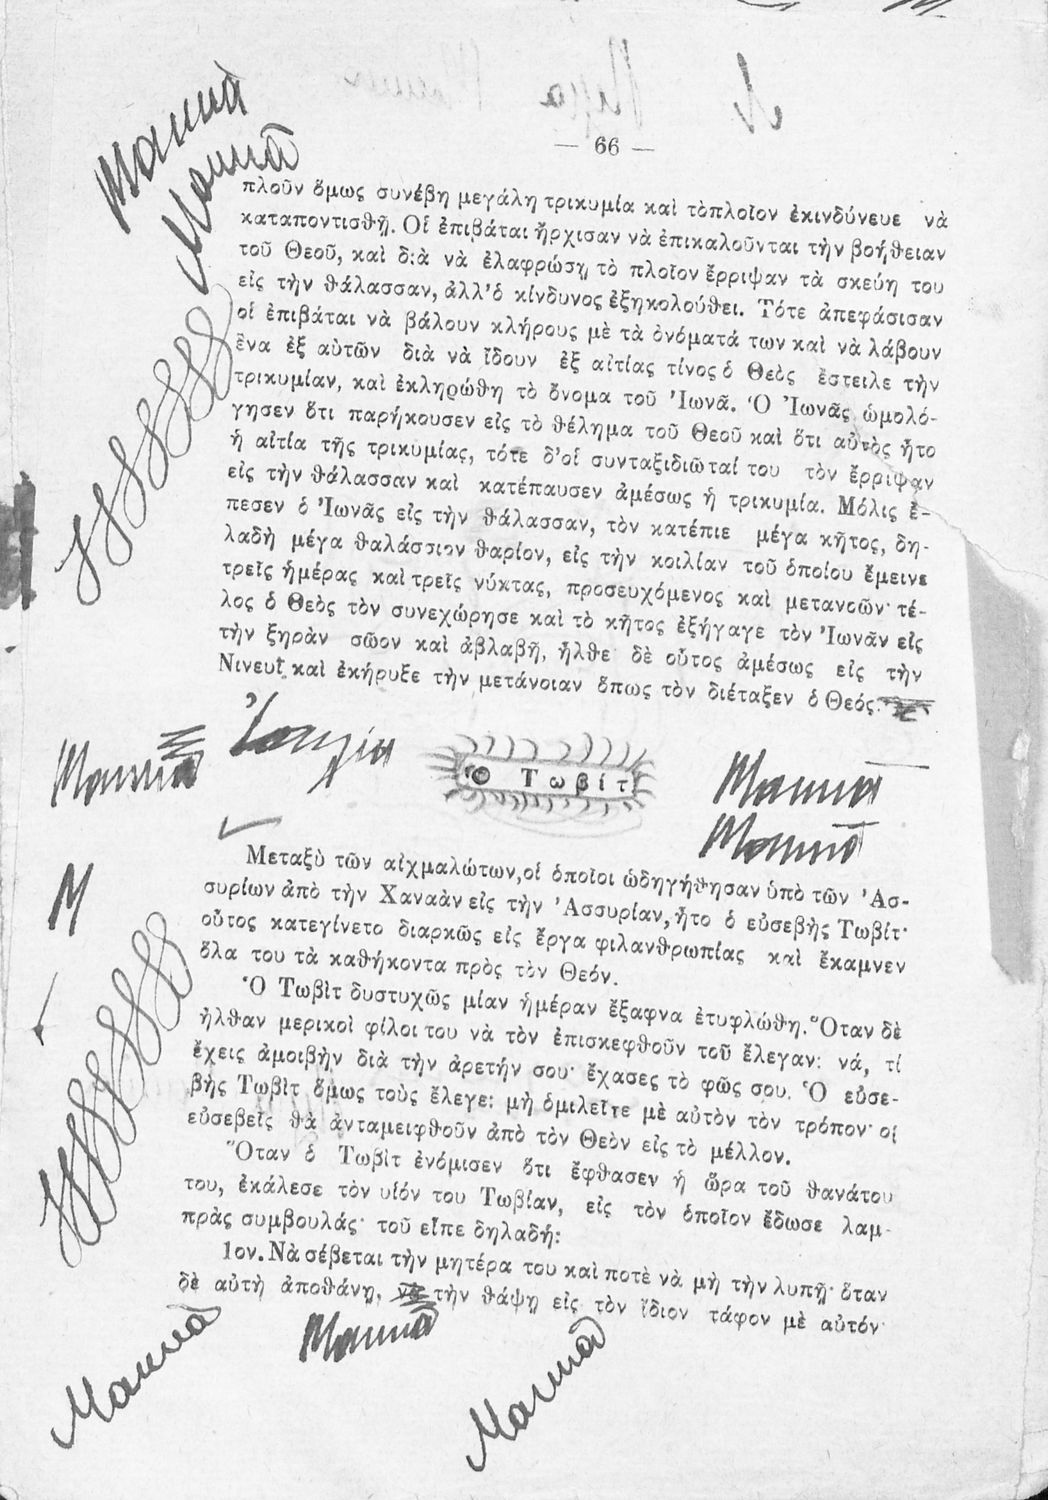 Μαμμά
Μαμμά
— 66 —
πλοῦν ὅμως συνέβη μεγάλη τρικυμία καὶ τὸπλοῖον ἐκινδύνευε νὰ
καταποντισθῇ. Οἱ ἐπιβάται ἤρχισαν νὰ ἐπικαλοῦνται τὴν βοήθειαν
τοῦ Θεοῦ, καὶ διὰ νὰ ἐλαφρώσῃ τὸ πλοῖον ἔρριψαν τὰ σκεύη του
εἰς τὴν θάλασσαν, ἀλλ' ὁ κίνδυνος ἐξηκολούθει. Τότε ἀπεφάσισαν
οἱ ἐπιβάται νὰ βάλουν κλήρους μὲ τὰ ὀνόματά των καὶ νὰ λάβουν
ἕνα ἐξ αὐτῶν διὰ νὰ ἴδουν ἐξ αἰτίας τίνος ὁ Θεὸς ἔστειλε τὴν
τρικυμίαν, καὶ ἐκληρώθη τὸ ὄνομα τοῦ Ἰωνᾶ. Ὁ Ἰωνᾶς ὡμολό-
γησεν ὅτι παρήκουσεν εἰς τὸ θέλημα τοῦ Θεοῦ καὶ ὅτι αὐτὸς ἦτο
ἡ αἰτία τῆς τρικυμίας, τότε δ' οἱ συνταξιδιῶταί του τὸν ἔρριψαν
εἰς τὴν θάλασσαν καὶ κατέπαυσεν ἀμέσως ἡ τρικυμία. Μόλις ἔ-
πεσεν ὁ Ἰωνᾶς εἰς τὴν θάλασσαν, τὸν κατέπιε μέγα κῆτος, δη-
λαδὴ μέγα θαλάσσιον θαρίον, εἰς τὴν κοιλίαν τοῦ ὁποίου ἔμεινε
τρεῖς ἡμέρας καὶ τρεῖς νύκτας, προσευχόμενος καὶ μετανοῶν· τέ-
λος ὁ Θεὸς τὸν συνεχώρησε καὶ τὸ κῆτος ἐξήγαγε τὸν Ἰωνᾶν εἰς
τὴν ξηρὰν σῶον καὶ ἀβλαβῆ, ἦλθε δὲ οὗτος ἀμέσως εἰς τὴν
Νινευῒ καὶ ἐκήρυξε τὴν μετάνοιαν ὅπως τὸν διέταξεν ὁ Θεός.
Μαμμά
Ὁ Τωβίτ
Μαμμά
Μαμμά
Μεταξὺ τῶν αἰχμαλώτων, οἱ ὁποῖοι ὡδηγήθησαν ὑπὸ τῶν Ἀσ-
συρίων ἀπὸ τὴν Χαναὰν εἰς τὴν Ἀσσυρίαν, ἦτο ὁ εὐσεβὴς Τωβίτ·
οὗτος κατεγίνετο διαρκῶς εἰς ἔργα φιλανθρωπίας καὶ ἔκαμνεν
ὅλα του τὰ καθήκοντα πρὸς τὸν Θεόν.
Μ
Ὁ Τωβὶτ δυστυχῶς μίαν ἡμέραν ἔξαφνα ἐτυφλώθη. Ὅταν δὲ
ἦλθαν μερικοὶ φίλοι του νὰ τὸν ἐπισκεφθοῦν τοῦ ἔλεγαν: νά, τί
ἔχεις ἀμοιβὴν διὰ τὴν ἀρετήν σου· ἔχασες τὸ φῶς σου. Ὁ εὐσε-
βὴς Τωβὶτ ὅμως τοὺς ἔλεγε: μὴ ὁμιλεῖτε μὲ αὐτὸν τὸν τρόπον· οἱ
εὐσεβεῖς θὰ ἀνταμειφθοῦν ἀπὸ τὸν Θεὸν εἰς τὸ μέλλον.
Ὅταν ὁ Τωβὶτ ἐνόμισεν ὅτι ἔφθασεν ἡ ὥρα τοῦ θανάτου
του, ἐκάλεσε τὸν υἱόν του Τωβίαν, εἰς τὸν ὁποῖον ἔδωσε λαμ-
πρὰς συμβουλάς· τοῦ εἶπε δηλαδή:
1ον. Νὰ σέβεται τὴν μητέρα του καὶ ποτὲ νὰ μὴ τὴν λυπῇ· ὅταν
δὲ αὐτὴ ἀποθάνῃ, νὰ τὴν θάψῃ εἰς τὸν ἴδιον τάφον μὲ αὐτόν·
Μαμμά
Μαμμά
Μαμμά